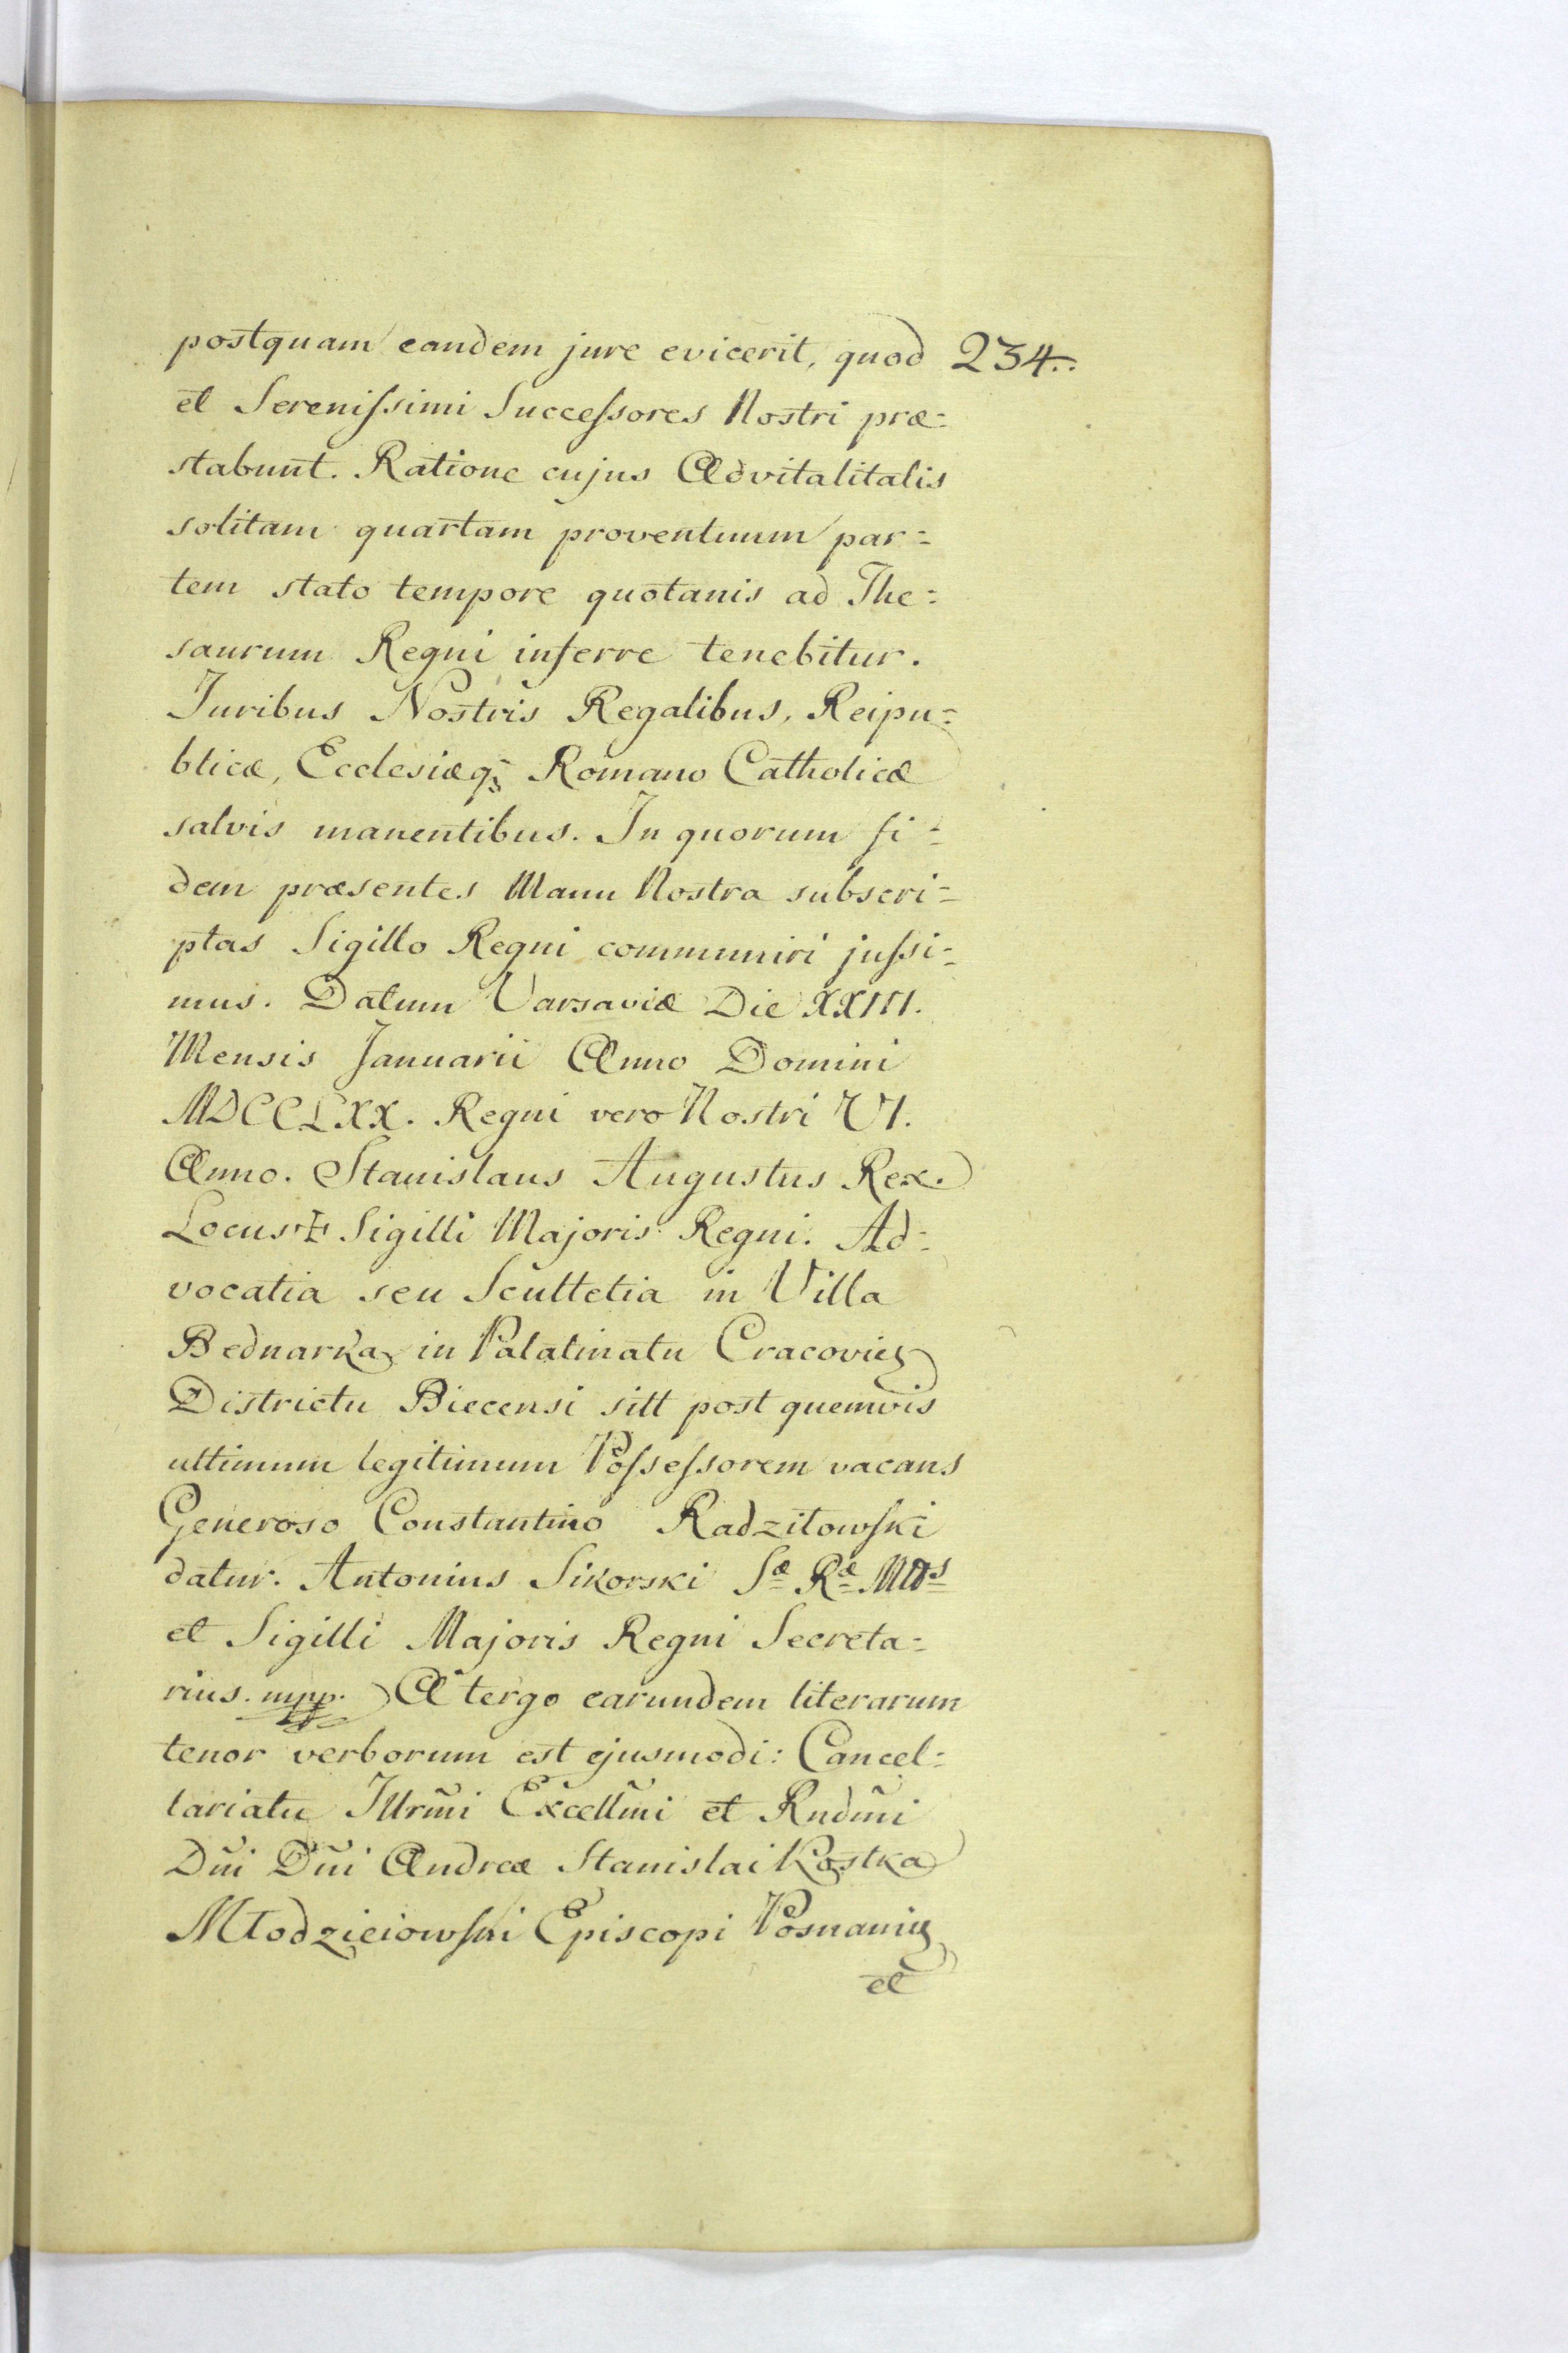 postquam eandem jure evicerit, quod 234..
et Serenißimi Succeßores Nostri præ=
stabunt. Ratione cujus Advitalitalis
solitam quartam proventuum par=
tem stato tempore quotanis ad The=
saurum Regni inferre tenebitur.
Juribus Nostris Regalibus, Reipu=
blicæ, Ecclesiæq3 Romano Catholicæ
salvis manentibus. In quorum fi=
dem præsentes Manu Nostra subscri=
ptas Sigillo Regni communiri jußi=
mus. Datum Varsaviæ Die XXIII.
Mensis Januarii Anno Domini
MDCCLXX. Regni vero Nostri VI.
Anno. Stanislaus Augustus Rex.
Locus ✠ Sigilli Majoris Regni. Ad=
vocatia seu Scultetia in Villa
Bednarka in Palatinatu Cracovieɳ
Districtu Biecensi sitt post quemvis
ultimum legitimum Poßeßorem vacans
Generoso Constantino Radziłowski
datur. Antonius Sikorski Sæ Ræ Mtts
et Sigilli Majoris Regni Secreta=
rius. mpp. A tergo earundem literarum
tenor verborum est ejusmodi: Cancel=
lariatu Illrm̃i Excellm̃i et Rndm̃i
Dñi Dñi Andreæ Stanislai Kostka
Młodzieiowski Episcopi Posnanieɳ
et